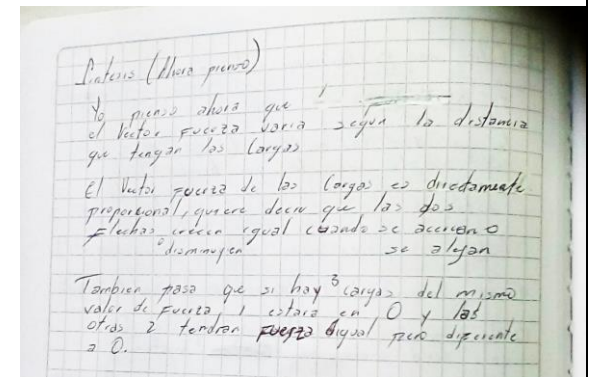 Síntesis (Ahora pienso)
Yo pienso ahora que
el Vector Fuerza varia según la distancia
que tengan las Cargas
El Vector Fuerza de las Cargas es directamente
proporcional, quiere decir que las dos
Flechas crecen igual cuando se acercan o
disminuyen se alejan
Tambien pasa que si hay 3 cargas del mismo
valor de Fuerza 1 estara en O y las
otras 2 tendran Fuerza igual pero diferente
a O.